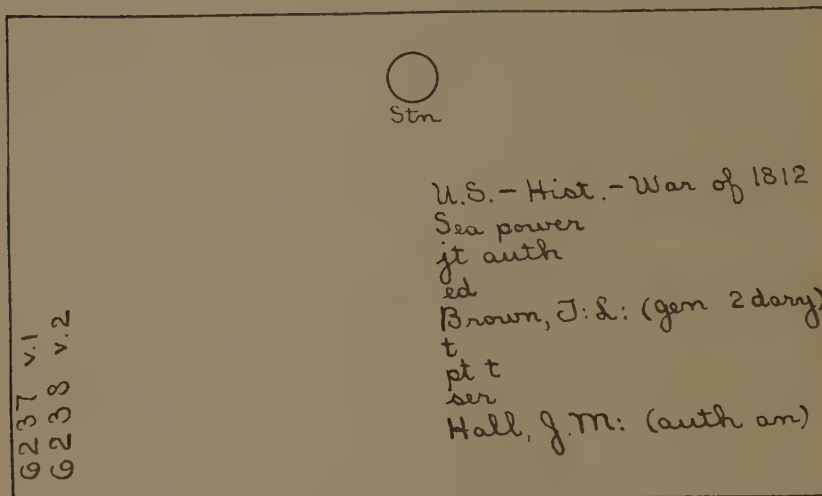 Stn
U.S.-Hist.-War of 1812
Sea power
jt auth
ed
Brown, J:L: (gen 2dary)
t
pt t
ser
Hall, J.M: (auth an)
6237 v.1
6238 v.2